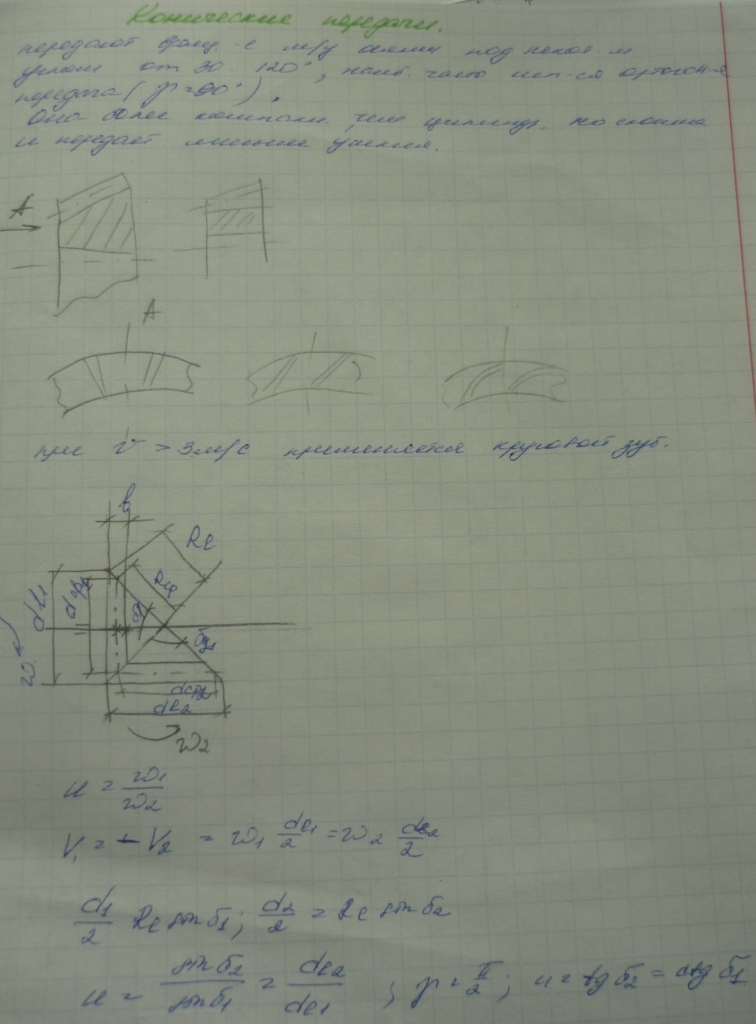 Конические передачи.
передают вращ-е м/у осями под некот-м
углом от 30 120°, наиб. часто исп-ся ортогон-я
передача (γ=90°).
Она более компакт. чем цилиндр. но сложна
и передает меньшие усилия.
A
A
при V > 3 м/с применяется круговой зуб.
b
Re
de1
dср1
δ2
dср2
de2
ω2
u = ω1/ω2
V1 = -V2 = ω1 de1/2 = ω2 de2/2
d1/2 Re sin δ1; d2/2 = Re sin δ2
u = sin δ2/sin δ1 = de2/de1 ; γ = π/2 ; u = tg δ2 = ctg δ1